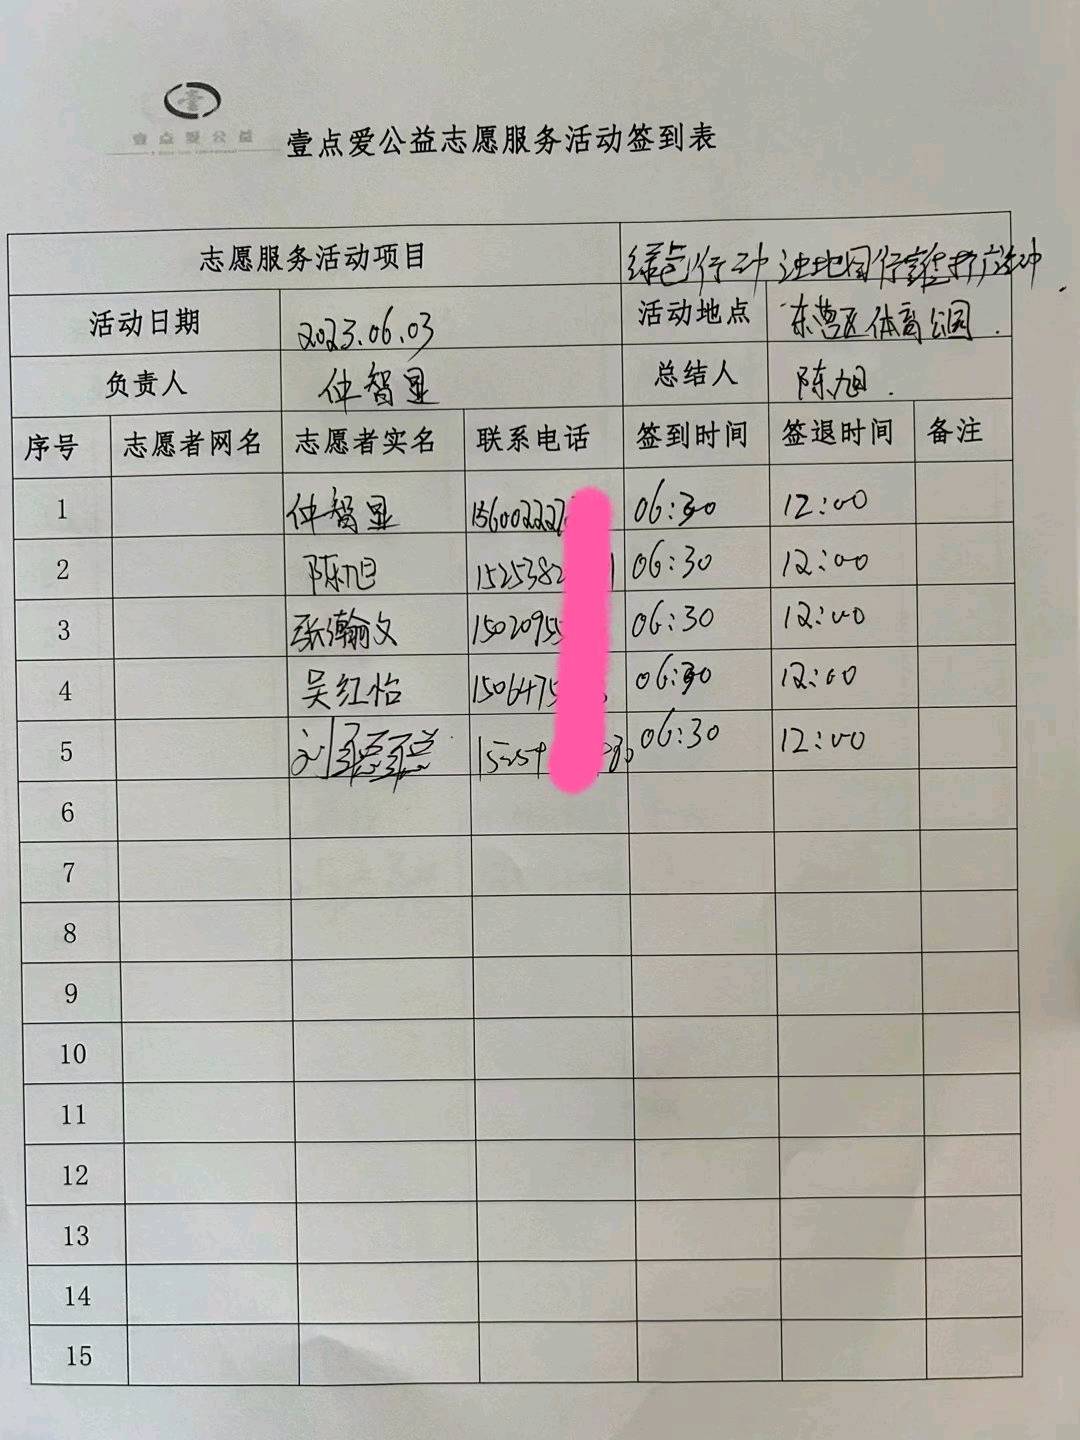 壹点爱公益
壹点爱公益志愿服务活动签到表
志愿服务活动项目 绿色行动
活动日期 2023.06.03 活动地点 东营区体育公园.
负责人 仲智显 总结人 陈旭.
序号 志愿者网名 志愿者实名 联系电话 签到时间 签退时间 备注
1 仲智显 15600222 06:30 12:00
2 陈旭 1525382 1 06:30 12:00
3 张瀚文 1502095 06:30 12:00
4 吴红怡 1506475 06:30 12:00
5 刘 15254 06:30 12:00
6
7
8
9
10
11
12
13
14
15